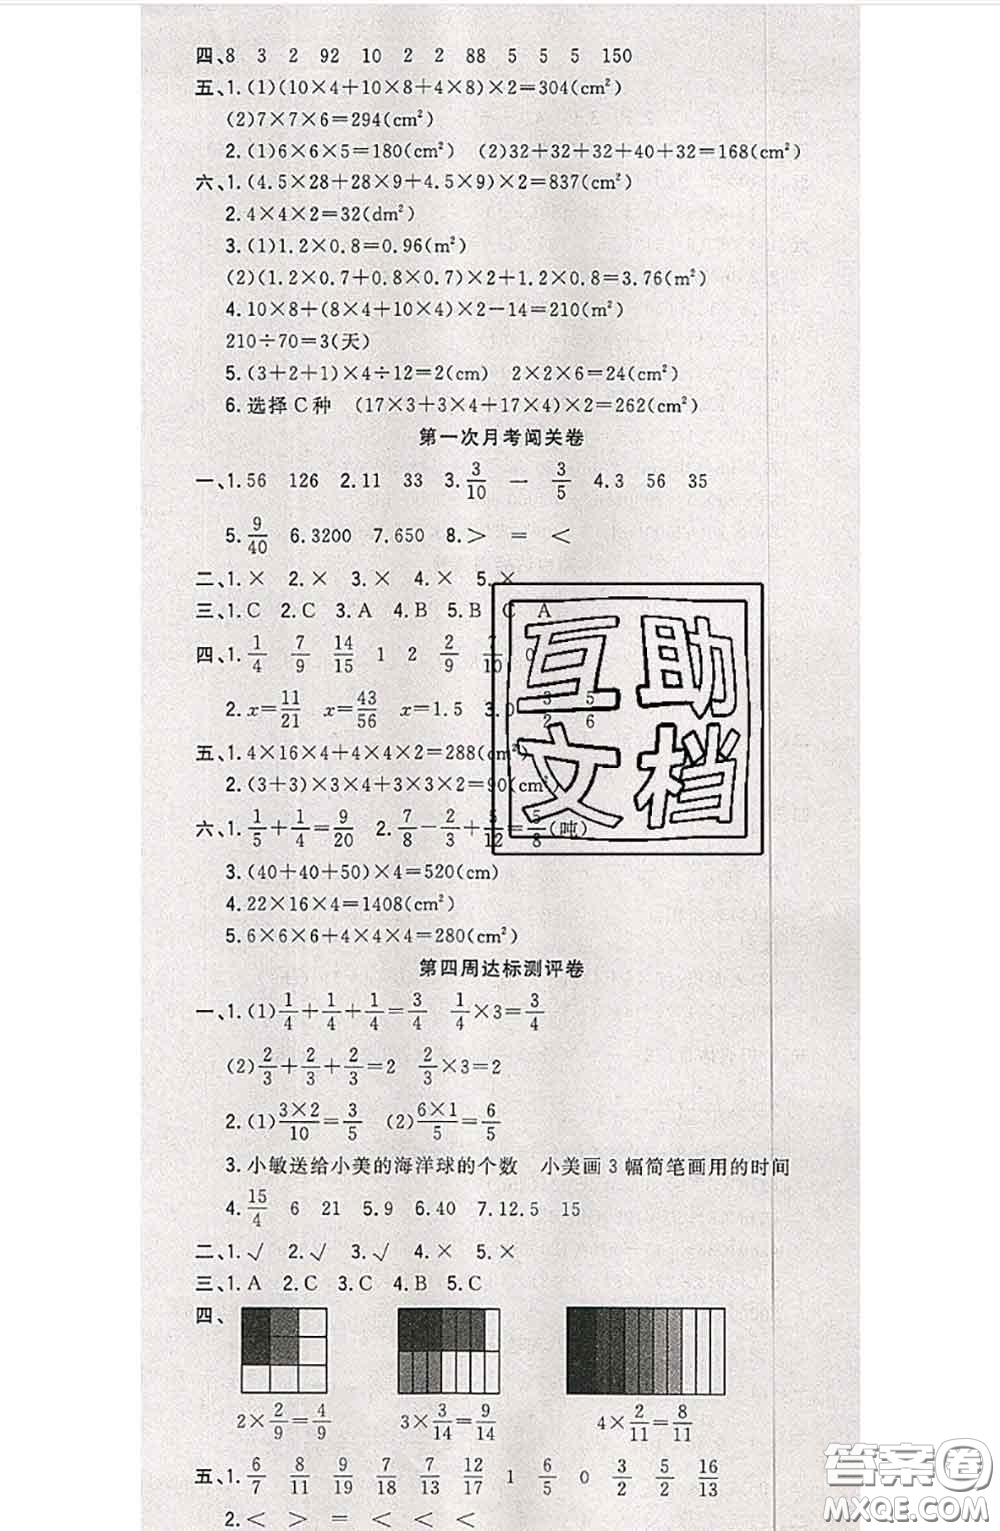 四、8 3 2 92 10 2 2 88 5 5 5 150
五、1.(1)(10×4+10×8+4×8)×2=304(cm²)
(2)7×7×6=294(cm²)
2.(1)6×6×5=180(cm²) (2)32+32+32+40+32=168(cm²)
六、1.(4.5×28+28×9+4.5×9)×2=837(cm²)
2.4×4×2=32(dm²)
3.(1)1.2×0.8=0.96(m²)
(2)(1.2×0.7+0.8×0.7)×2+1.2×0.8=3.76(m²)
4.10×8+(8×4+10×4)×2-14=210(m²)
210÷70=3(天)
5.(3+2+1)×4÷12=2(cm) 2×2×6=24(cm²)
6.选择C种 (17×3+3×4+17×4)×2=262(cm²)
第一次月考闯关卷
一、1.56 126 2.11 33 3.3/10 一 3/5 4.3 56 35
5.9/40 6.3200 7.650 8.> = <
二、1.× 2.× 3.× 4.× 5.×
三、1.C 2.C 3.A 4.B 5.B C A
四、1.1/4 7/9 14/15 1 2 2/9 7/10 0
2.x=11/21 x=43/56 x=1.5 3.0 3/2 5/6
五、1.4×16×4+4×4×2=288(cm²)
2.(3+3)×3×4+3×3×2=90(cm²)
六、1.1/5+1/4=9/20 2.7/8-2/3+5/12=5/8(吨)
3.(40+40+50)×4=520(cm)
4.22×16×4=1408(cm²)
5.6×6×6+4×4×4=280(cm²)
互助
文档
第四周达标测评卷
一、1.(1)1/4+1/4+1/4=3/4 1/4×3=3/4
(2)2/3+2/3+2/3=2 2/3×3=2
2.(1)3×2/10=3/5 (2)6×1/5=6/5
3.小敏送给小美的海洋球的个数 小美画3幅简笔画用的时间
4.15/4 6 21 5.9 6.40 7.12.5 15
二、1.√ 2.√ 3.√ 4.× 5.×
三、1.A 2.C 3.C 4.B 5.C
四、
2×2/9=4/9 3×3/14=9/14 4×2/11=8/11
五、1.6/7 8/11 9/19 7/18 7/13 12/17 1 6/5 0 3/2 5/2 16/13
2.< > = < < <
答案卷
MXQE.COM